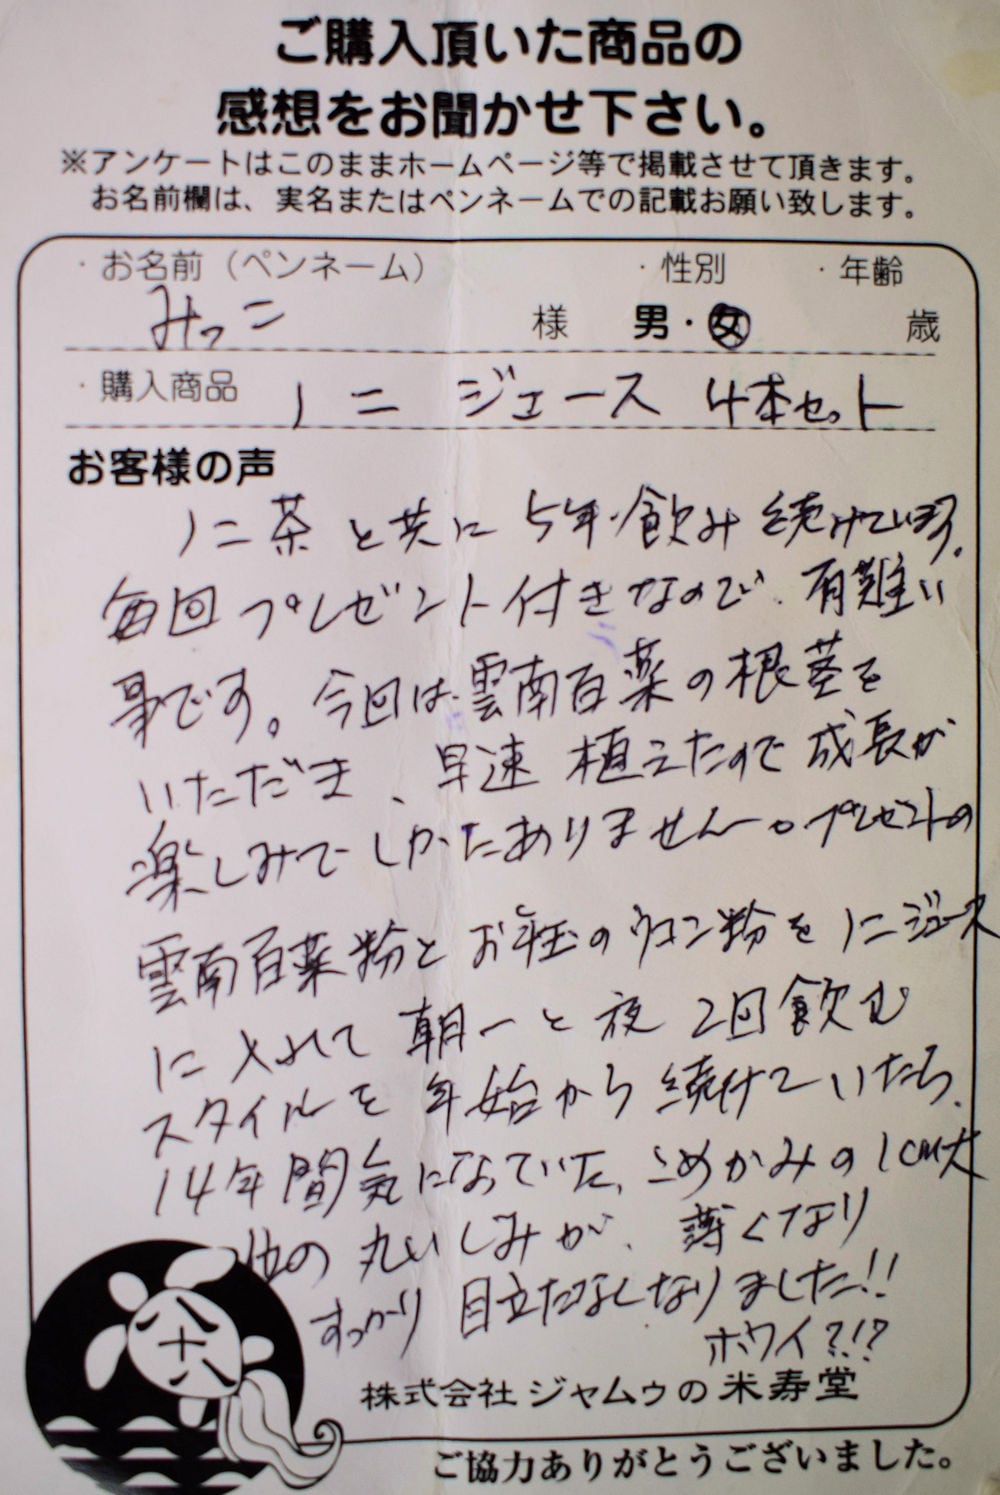 ご購入頂いた商品の
感想をお聞かせ下さい。
※アンケートはこのままホームページ等で掲載させて頂きます。
お名前欄は、実名またはペンネームでの記載お願い致します。
・お名前（ペンネーム） ・性別 ・年齢
みっこ 様 男・女 歳
・購入商品 ノニ ジュース 4本セット
お客様の声
ノニ茶と共に5年飲み続けています。
毎回プレゼント付きなので、有難い
事です。今回は雲南百薬の根茎を
いただき、早速植えたので成長が
楽しみでしかたありません。プレゼントの
雲南百薬粉とお年玉のウコン粉をノニジュース
に入れて朝一と夜2回飲む
スタイルを年始から続けていたら、
14年間気になっていた、こめかみの1cm大
位の丸いしみが、薄くなり
すっかり目立たなくなりました!!
ホワイ?!?
八十八
株式会社ジャムゥの米寿堂
ご協力ありがとうございました。